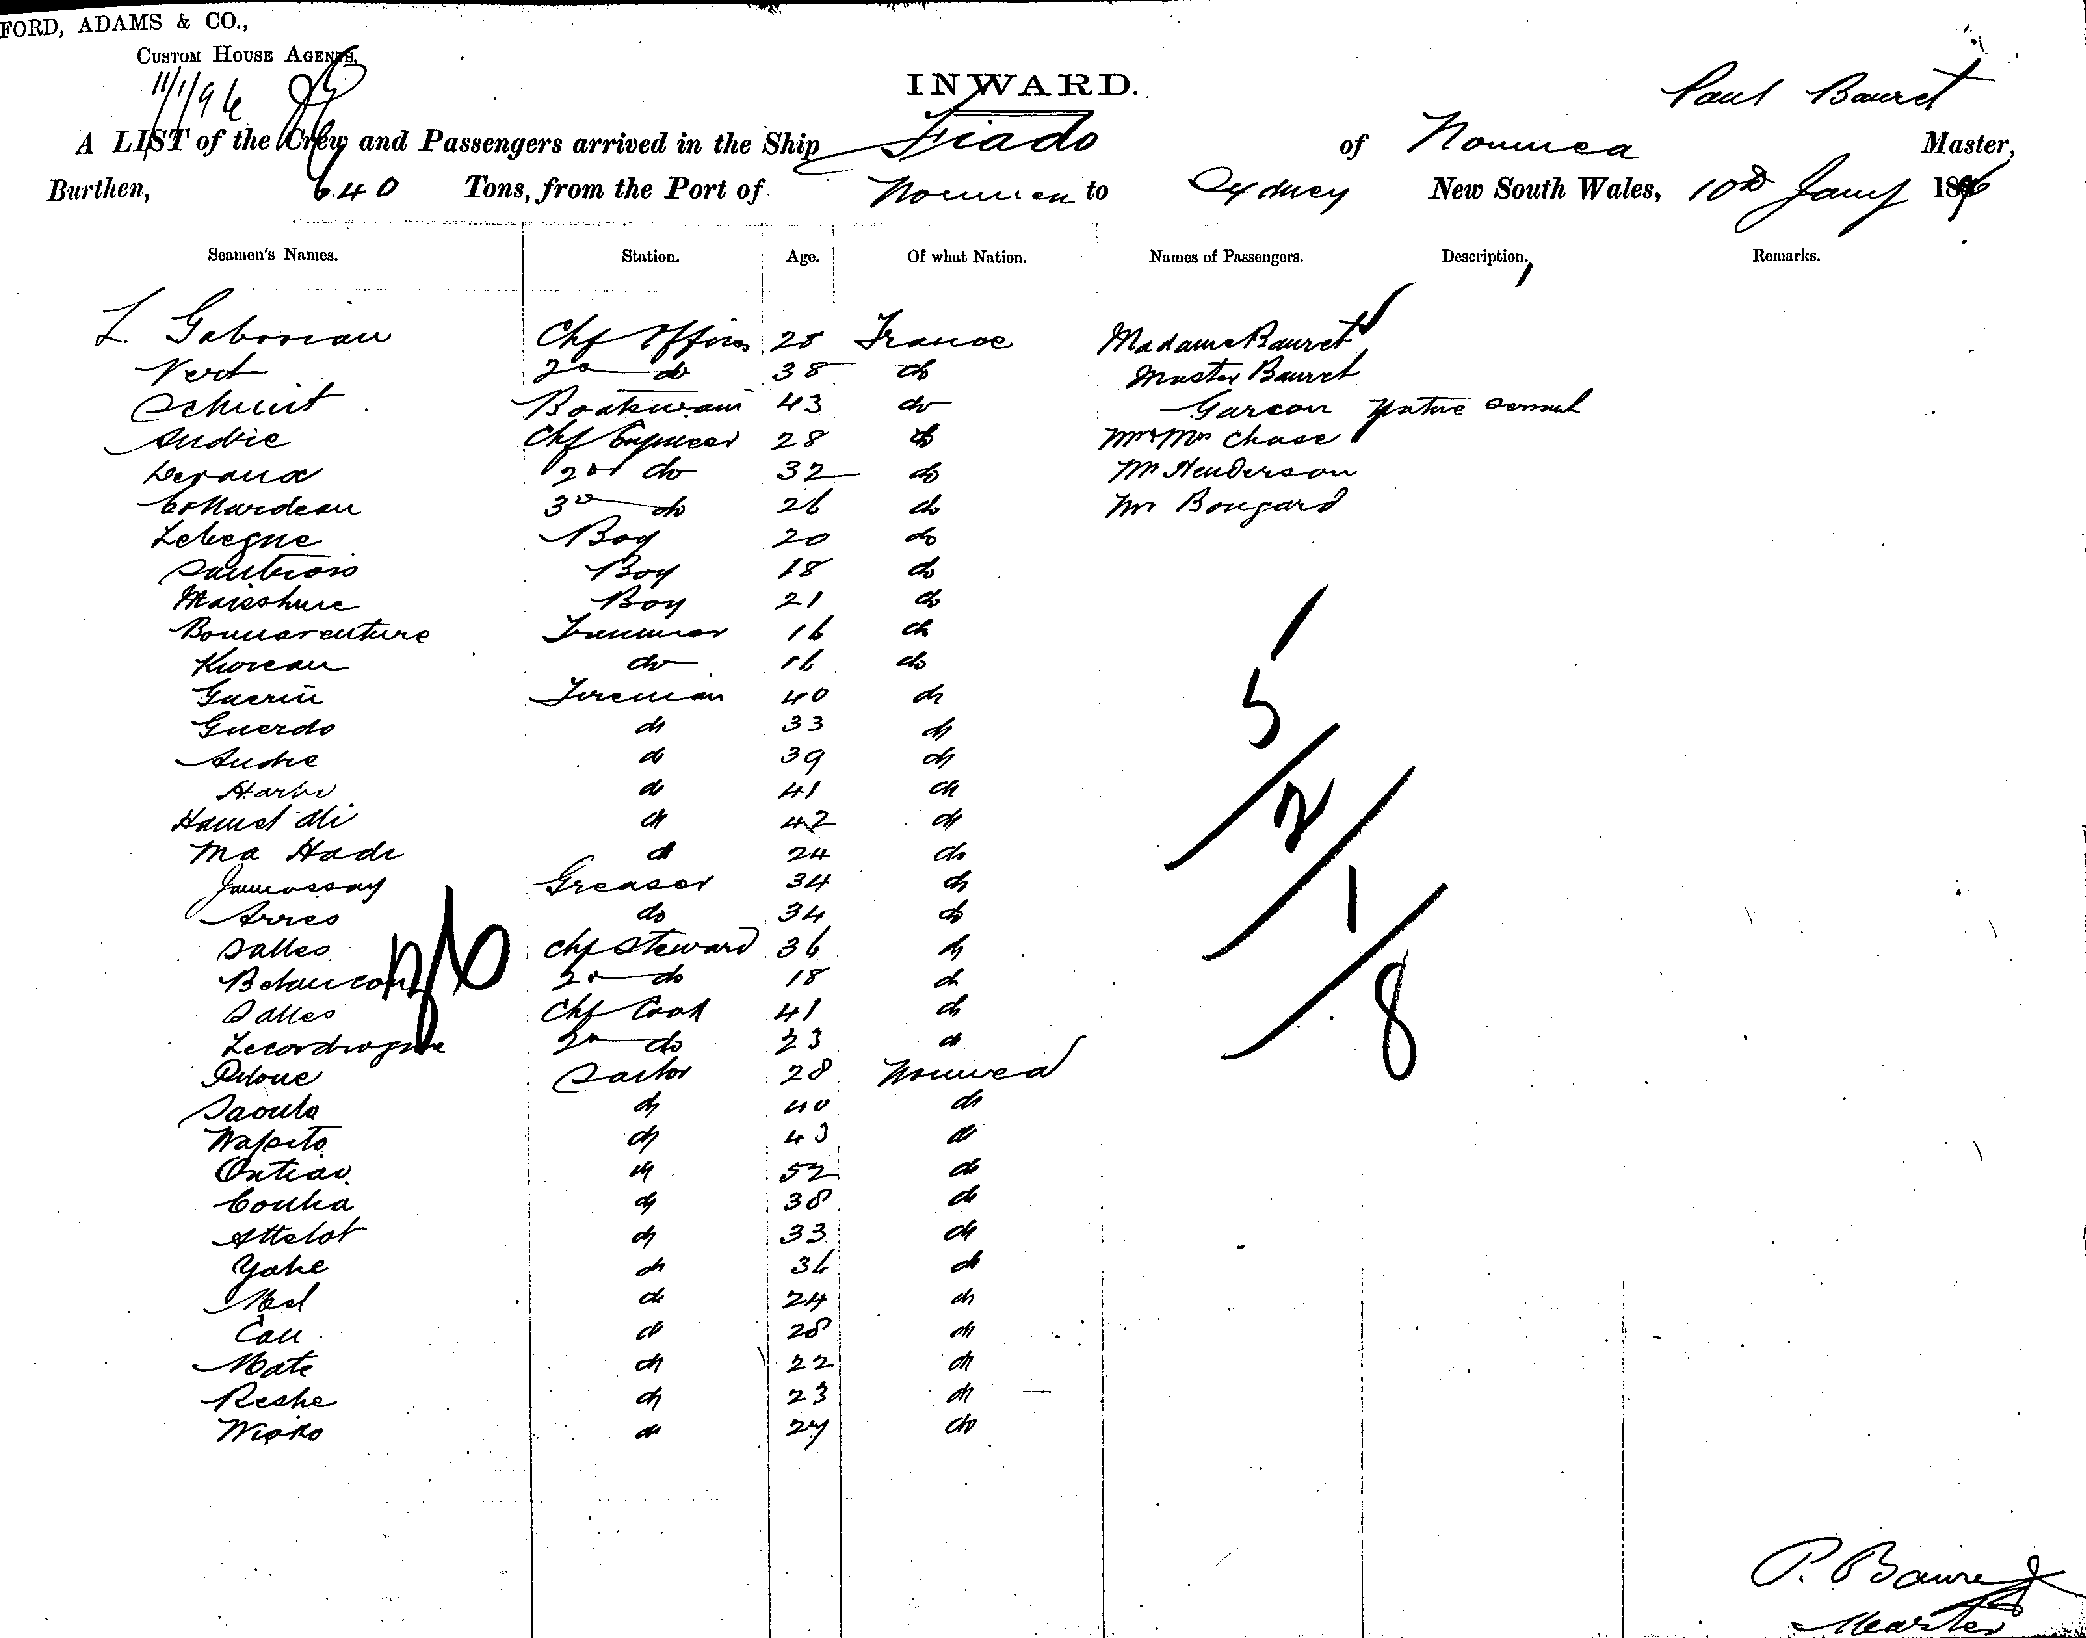 FORD, ADAMS & CO.,
CUSTOM HOUSE AGENTS,
11/1/96
INWARD.
Paul Bauret
A LIST of the Crew and Passengers arrived in the Ship Tiado of Noumea Master,
Burthen, 640 Tons, from the Port of Noumea to Sydney New South Wales, 10th Jany 1896
Seamen's Names. Station. Age. Of what Nation. Names of Passengers. Description. Remarks.
L. Gaboriau Chf Officer 25 France Madame Bauret
Vert 2nd do 38 do Master Bauret
Schmit Boatswain 43 do Garcon Native servant
Andrie Chf Engineer 28 do Mr & Mrs Chase
2nd do 32 do Mr Henderson
3rd do 26 do Mr Bougard
Lebegue Boy 20 do
Boy 18 do
Boy 21 do
Bonnaventure Trimmer 16 do
do 16 do
Guerin Fireman 40 do
Guerdo do 33 do
Andre do 39 do
do 41 do
Hamet Ali do 42 do
Ma Hade do 24 do
Greaser 34 do
Arres do 34 do
Salles Chf Steward 36 do
2nd do 18 do
Salles Chf Cook 41 do
2nd do 23 do
Pilone Sailor 28 Noumea
Saoula do 40 do
Wapito do 43 do
do 52 do
Couha do 38 do
Attelot do 33 do
Yahe do 36 do
do 24 do
Cau do 28 do
Mate do 22 do
Reshe do 23 do
do 27 do
5
2
1
8
P. Bauret
Master